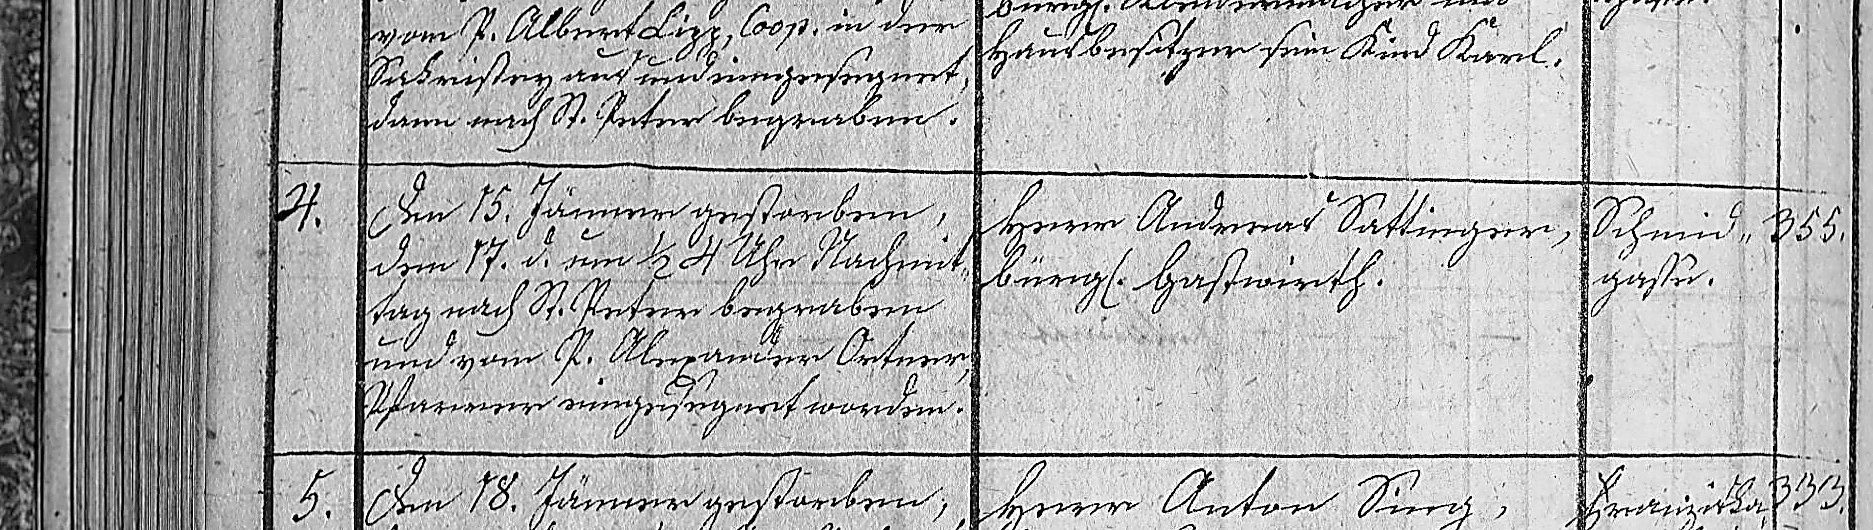 vom P. Albert Lipp, Coop. in der
Sakristey aus und eingesegnet,
dann nach St. Peter begraben.
bürgl.
Hausbesitzer sein Kind Karl.
4.
Den 15. Jänner gestorben,
den 17. d. um ½ 4 Uhr Nachmit-
tag nach St. Peter begraben
und vom P. Alexander Ortner,
Pfarrer eingesegnet worden.
Herr Andreas Sattinger,
bürgl. Gastwirth.
Schmid-
gasse.
355.
5.
Den 18. Jänner gestorben,
Herr Anton Sing,
333.